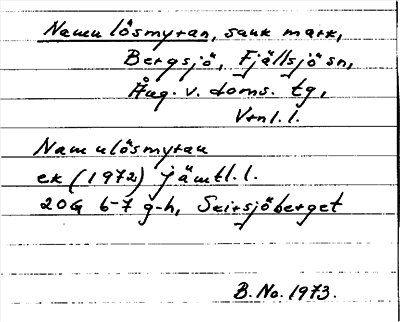 Namnlösmyran, sank mark,
Bergsjö, Fjällsjö sn,
Ång. v. doms. tg,
Vtnl. l.
Namnlösmyran
ek (1972) jämtl. l.
20G 6-7 g-h, Seirsjöberget
B. No. 1973.